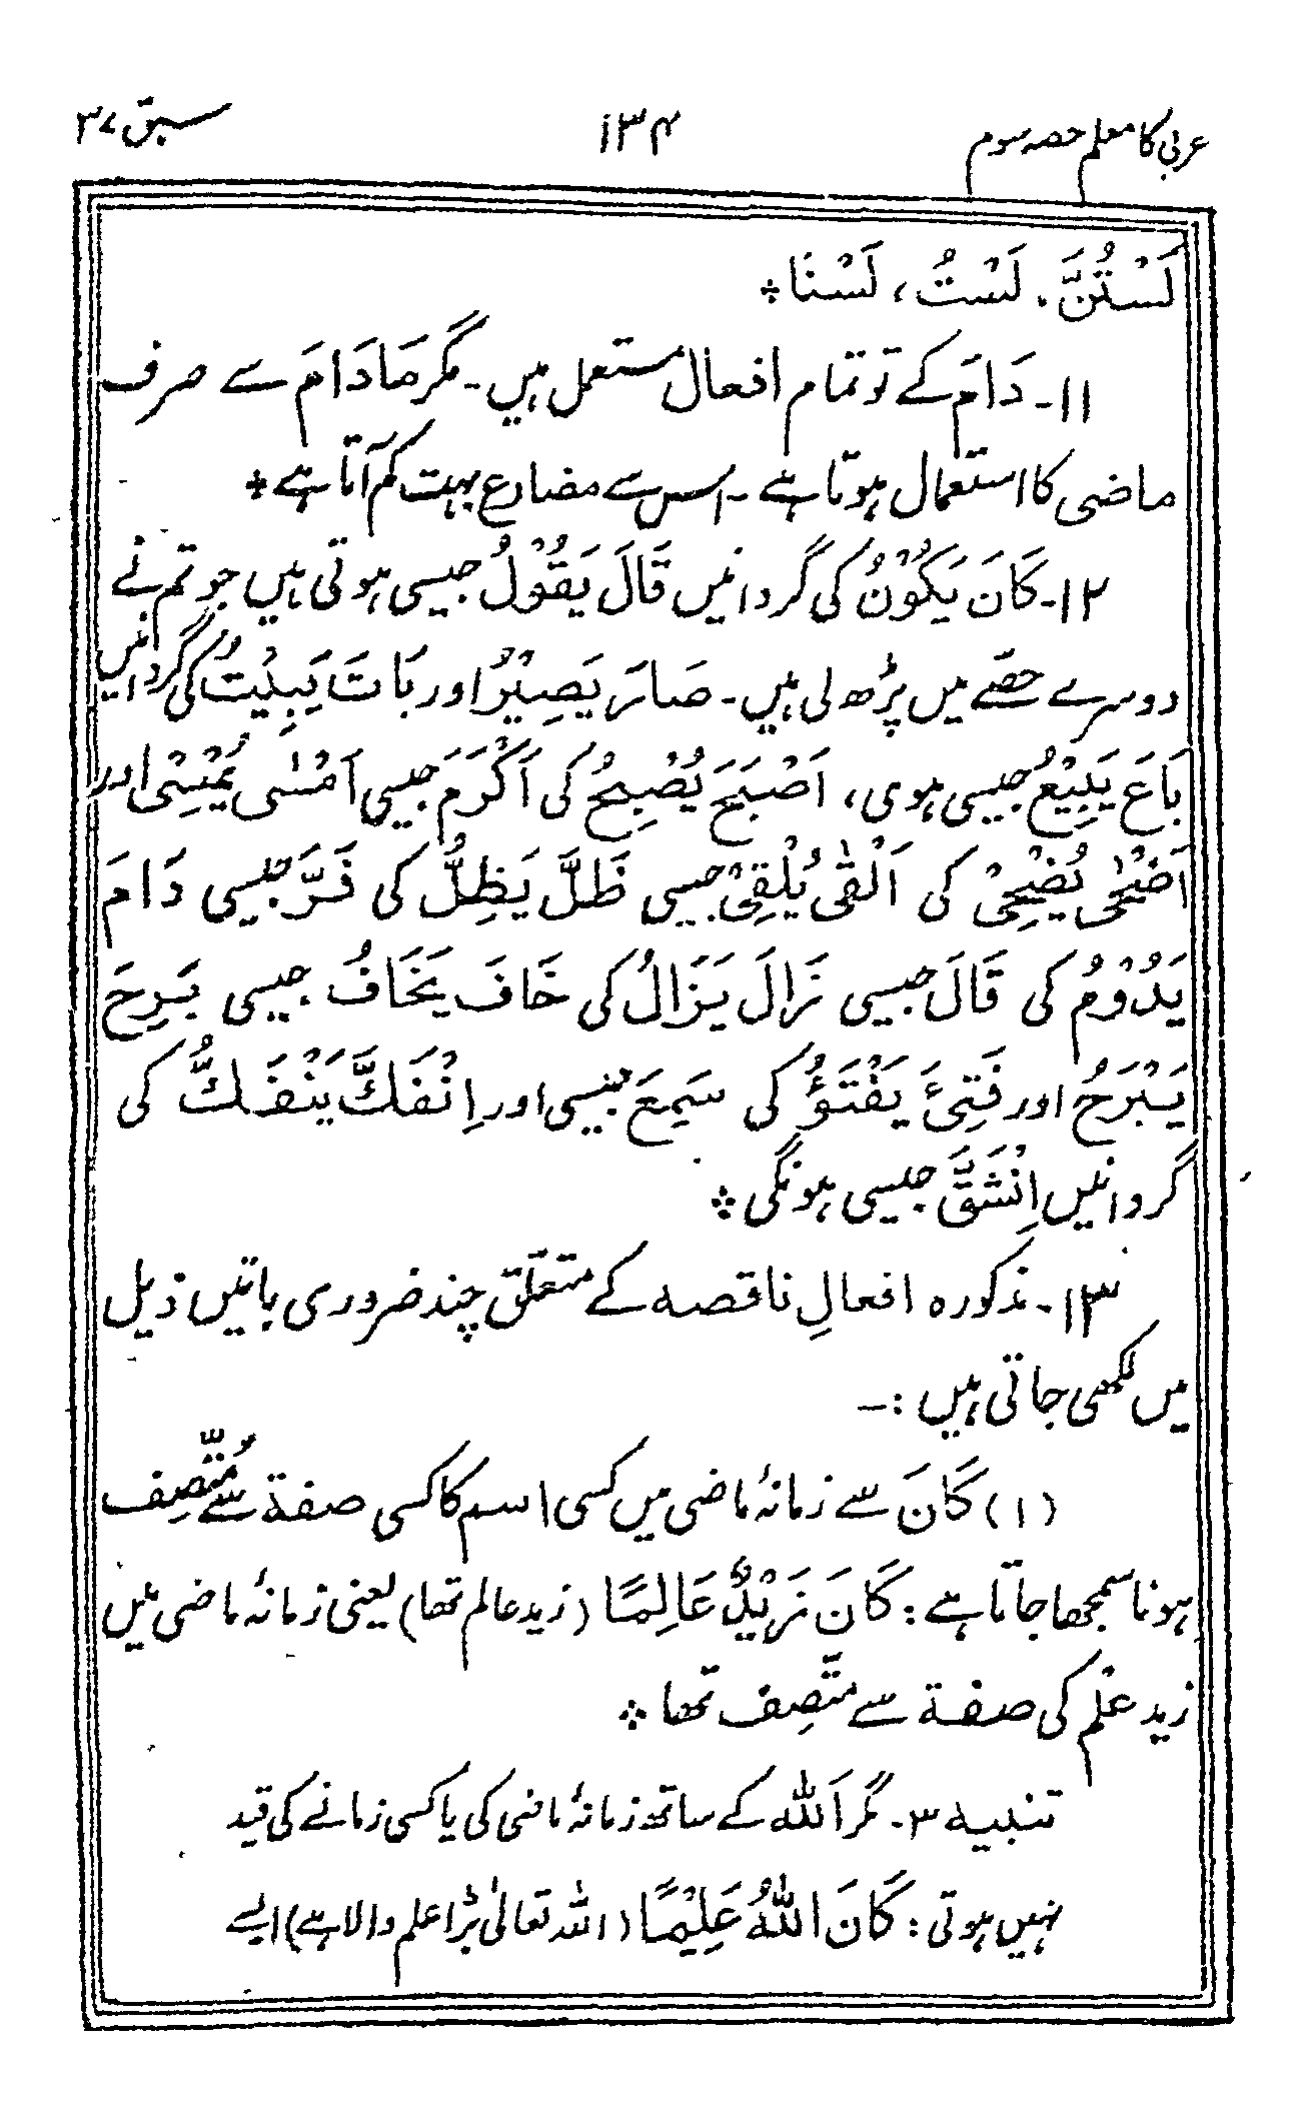 عربی کا معلم حصہ سوم ۱۳۴ سبق ۳۷
لَسْتُنَّ. لَسْتُ، لَسْنَا ÷
۱۱۔ دَامَ کے تو تمام افعال مستعمل ہیں۔ مگر مَا دَامَ سے صرف
ماضی کا استعمال ہوتا ہے۔ اس سے مضارع بہت کم آتا ہے ÷
۱۲۔ كَانَ يَكُوْنُ کی گردانیں قَالَ يَقُوْلُ جیسی ہوتی ہیں جو تم نے
دوسرے حصّے میں پڑھ لی ہیں۔ صَارَ يَصِيْرُ اور بَاتَ يَبِيْتُ کی گردانیں
بَاعَ يَبِيْعُ جیسی ہوی، اَصْبَحَ يُصْبِحُ کی اَكْرَمَ جیسی اَمْسٰى يُمْسِىْ اور
اَضْحٰى يُضْحِىْ کی اَلْقٰى يُلْقِىْ جیسی ظَلَّ يَظِلُّ کی فَرَّ جیسی دَامَ
يَدُوْمُ کی قَالَ جیسی زَالَ يَزَالُ کی خَافَ يَخَافُ جیسی بَرِحَ
يَبْرَحُ اور فَتِئَ يَفْتَؤُ کی سَمِعَ جیسی اور اِنْفَكَّ يَنْفَكُّ کی
گردانیں اِنْشَقَّ جیسی ہونگی ÷
۱۳۔ مذکورہ افعالِ ناقصہ کے متعلّق چند ضروری باتیں ذیل
میں لکھی جاتی ہیں :-
(۱) كَانَ سے زمانۂ ماضی میں کسی اسم کا کسی صفة سے مُتَّصِف
ہونا سمجھا جاتا ہے : كَانَ زَيْدٌ عَالِمًا (زید عالم تھا) یعنی زمانۂ ماضی میں
زید عِلْم کی صفة سے متَّصِف تھا ÷
تنبیہ ۳۔ مگر اَللّٰه کے ساتھ زمانۂ ماضی کی یا کسی زمانے کی قید
نہیں ہوتی : كَانَ اللّٰهُ عَلِيْمًا (اللّٰہ تعالیٰ بڑا علم والا ہے) ایسے